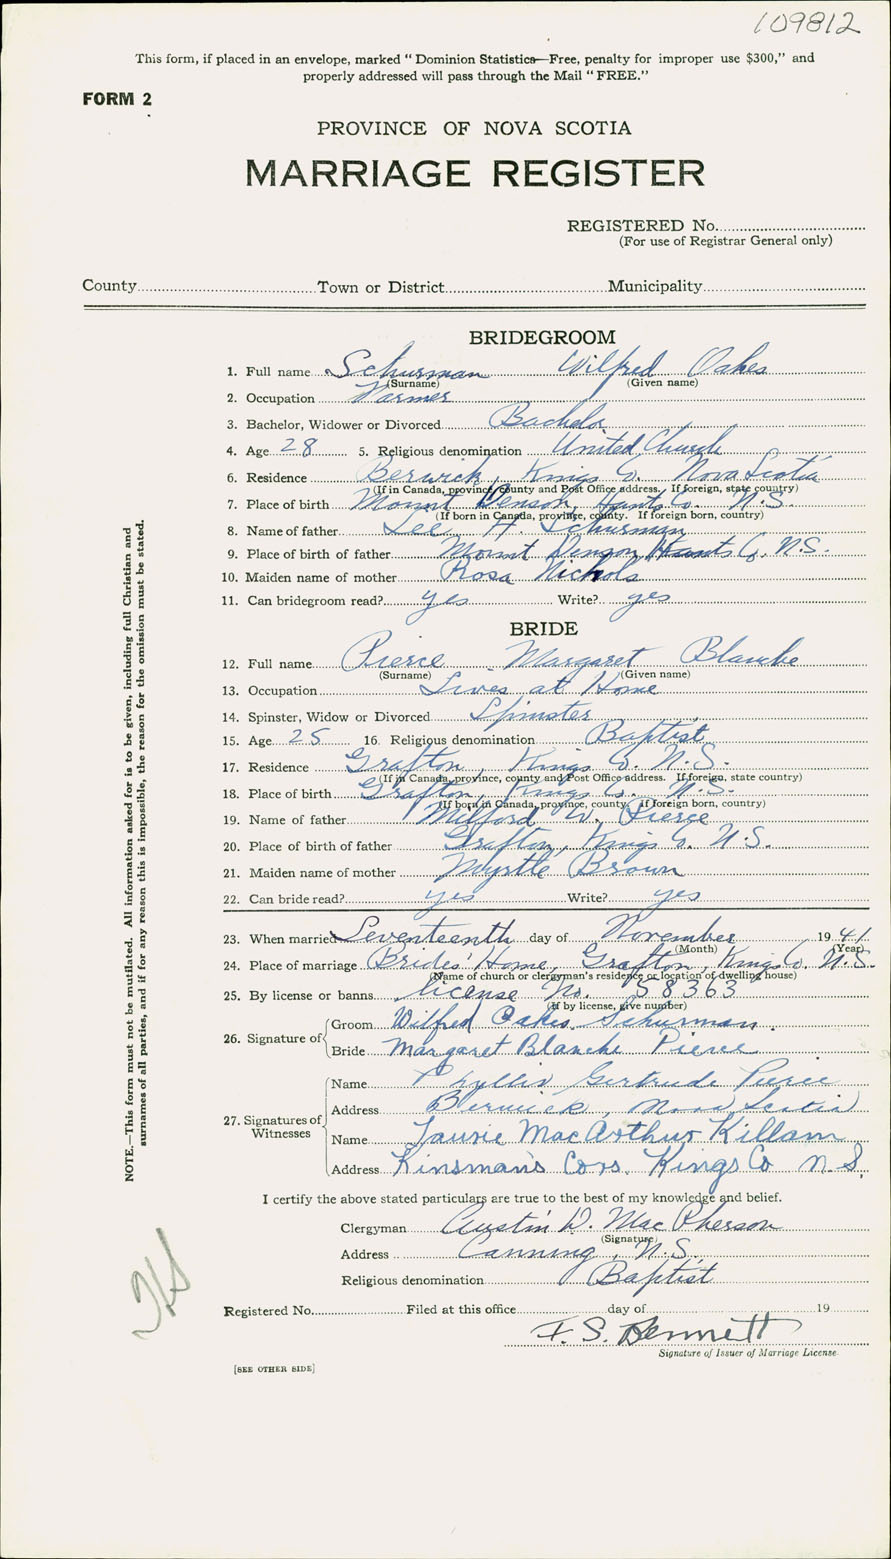 109812
This form, if placed in an envelope, marked "Dominion Statistics—Free, penalty for improper use $300," and
properly addressed will pass through the Mail "FREE."
FORM 2
PROVINCE OF NOVA SCOTIA
MARRIAGE REGISTER
REGISTERED No.
(For use of Registrar General only)
County Town or District Municipality
BRIDEGROOM
1. Full name Schurman Wilfred Oakes
(Surname) (Given name)
2. Occupation Farmer
3. Bachelor, Widower or Divorced Bachelor
4. Age 28 5. Religious denomination United Church
6. Residence Berwick, Kings Co. Nova Scotia
(If in Canada, province, county and Post Office address. If foreign, state country)
7. Place of birth Mount Denson, Hants Co. N.S.
(If born in Canada, province, county. If foreign born, country)
8. Name of father Lee H. Schurman
9. Place of birth of father Mount Denson, Hants Co. N.S.
10. Maiden name of mother Rosa Nichols
11. Can bridegroom read? yes Write? yes
BRIDE
12. Full name Pierce Margaret Blanche
(Surname) (Given name)
13. Occupation Lives at Home
14. Spinster, Widow or Divorced Spinster
15. Age 25 16. Religious denomination Baptist
17. Residence Grafton, Kings Co. N.S.
(If in Canada, province, county and Post Office address. If foreign, state country)
18. Place of birth Grafton, Kings Co. N.S.
(If born in Canada, province, county. If foreign born, country)
19. Name of father Milford W. Pierce
20. Place of birth of father Grafton, Kings Co. N.S.
21. Maiden name of mother Myrtle Brown
22. Can bride read? yes Write? yes
23. When married Seventeenth day of November 1941
(Month) (Year)
24. Place of marriage Brides' Home, Grafton, Kings Co. N.S.
(Name of church or clergyman's residence or location of dwelling house)
25. By license or banns license No. 58363
(If by license, give number)
26. Signature of
Groom Wilfred Oakes Schurman.
Bride Margaret Blanche Pierce
27. Signatures of Witnesses
Name Phyllis Gertrude Pierce
Address Berwick, Nova Scotia
Name Laurie MacArthur Killam
Address Kinsman's Cors. Kings Co N.S.
I certify the above stated particulars are true to the best of my knowledge and belief.
Clergyman Austin D. MacPherson
(Signature)
Address Canning, N.S.
Religious denomination Baptist
Registered No. Filed at this office day of 19
F. S. Bennett
Signature of Issuer of Marriage License
[SEE OTHER SIDE]
NOTE.—This form must not be mutilated. All information asked for is to be given, including full Christian and
surnames of all parties, and if for any reason this is impossible, the reason for the omission must be stated.